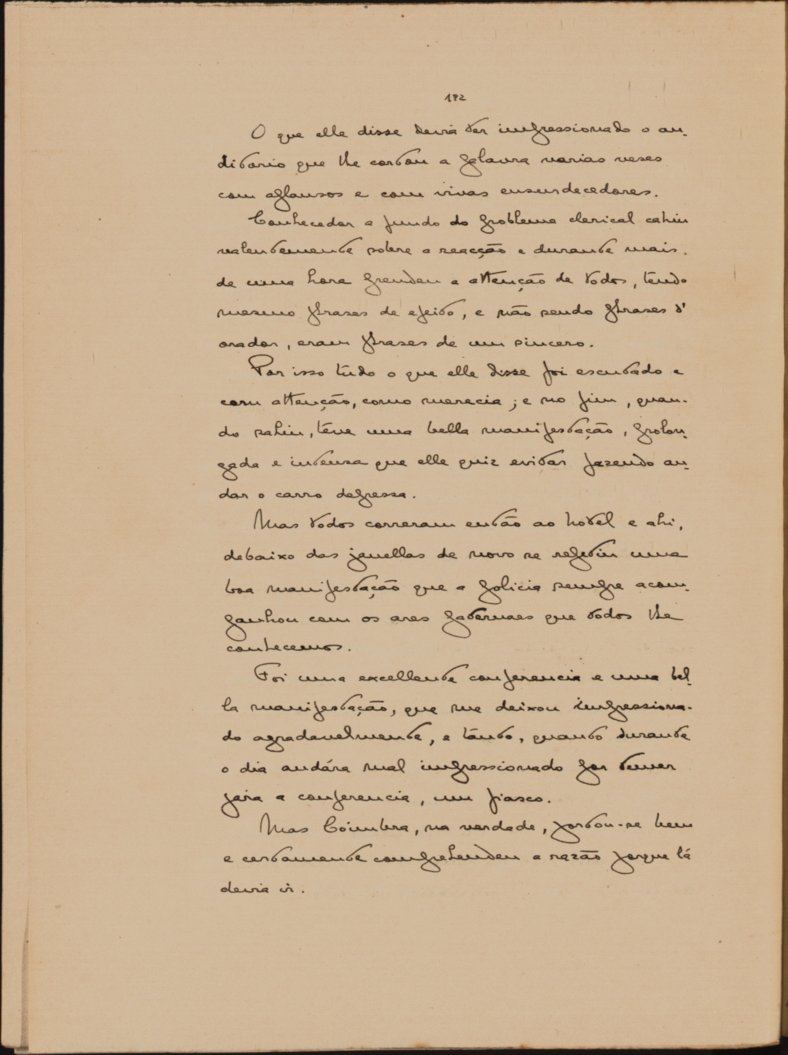 182
O que elle disse devia ter impressionado o au-
ditorio que lhe cortou a palavra varias veses
com aplausos e com vivas ensurdecedores.
Conhecedor a fundo do problema clerical cahiu
valentemente sobre a reacção e durante mais
de uma hora prendeu a attenção de todos, tendo
mesmo phrases de efeito, e não sendo phrases d'
orador, eram phrases de um sincero.
Por isso tudo o que elle disse foi escutado e
com attenção, como merecia; e no fim, quan-
do sahiu, teve uma bella manifestação, prolon-
gada e intensa que elle quiz evitar fazendo an-
dar o carro depressa.
Mas todos correram então ao hotel e ahi,
debaixo das janellas de novo se repetiu uma
boa manifestação que a policia sempre acom-
panhou com os ares paternaes que todos lhe
conhecemos.
Foi uma excellente conferencia e uma bel-
la manifestação, que me deixou impressiona-
do agradavelmente, e tanto, quanto durante
o dia andára mal impressionado por temer
fôra a conferencia, um fiasco.
Mas Coimbra, na verdade, portou-se bem
e certamente comprehendeu a razão porque lá
devia ir.